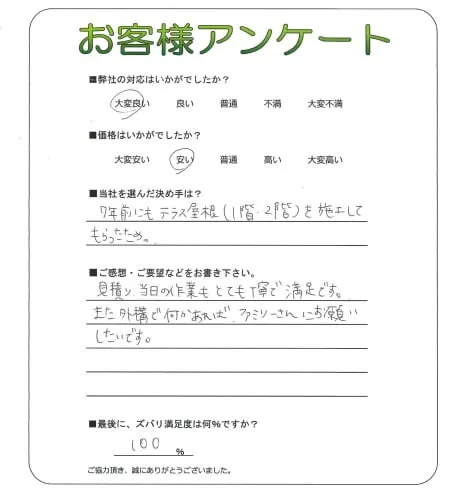 お客様アンケート
■弊社の対応はいかがでしたか？
大変良い 良い 普通 不満 大変不満
■価格はいかがでしたか？
大変安い 安い 普通 高い 大変高い
■当社を選んだ決め手は？
7年前にもテラス屋根(1階・2階)を施工して
もらったため。
■ご感想・ご要望などをお書き下さい。
見積り、当日の作業もとても丁寧で満足です。
また外構で何かあれば、ファミリーさんにお願い
したいです。
■最後に、ズバリ満足度は何％ですか？
100 ％
ご協力頂き、誠にありがとうございました。